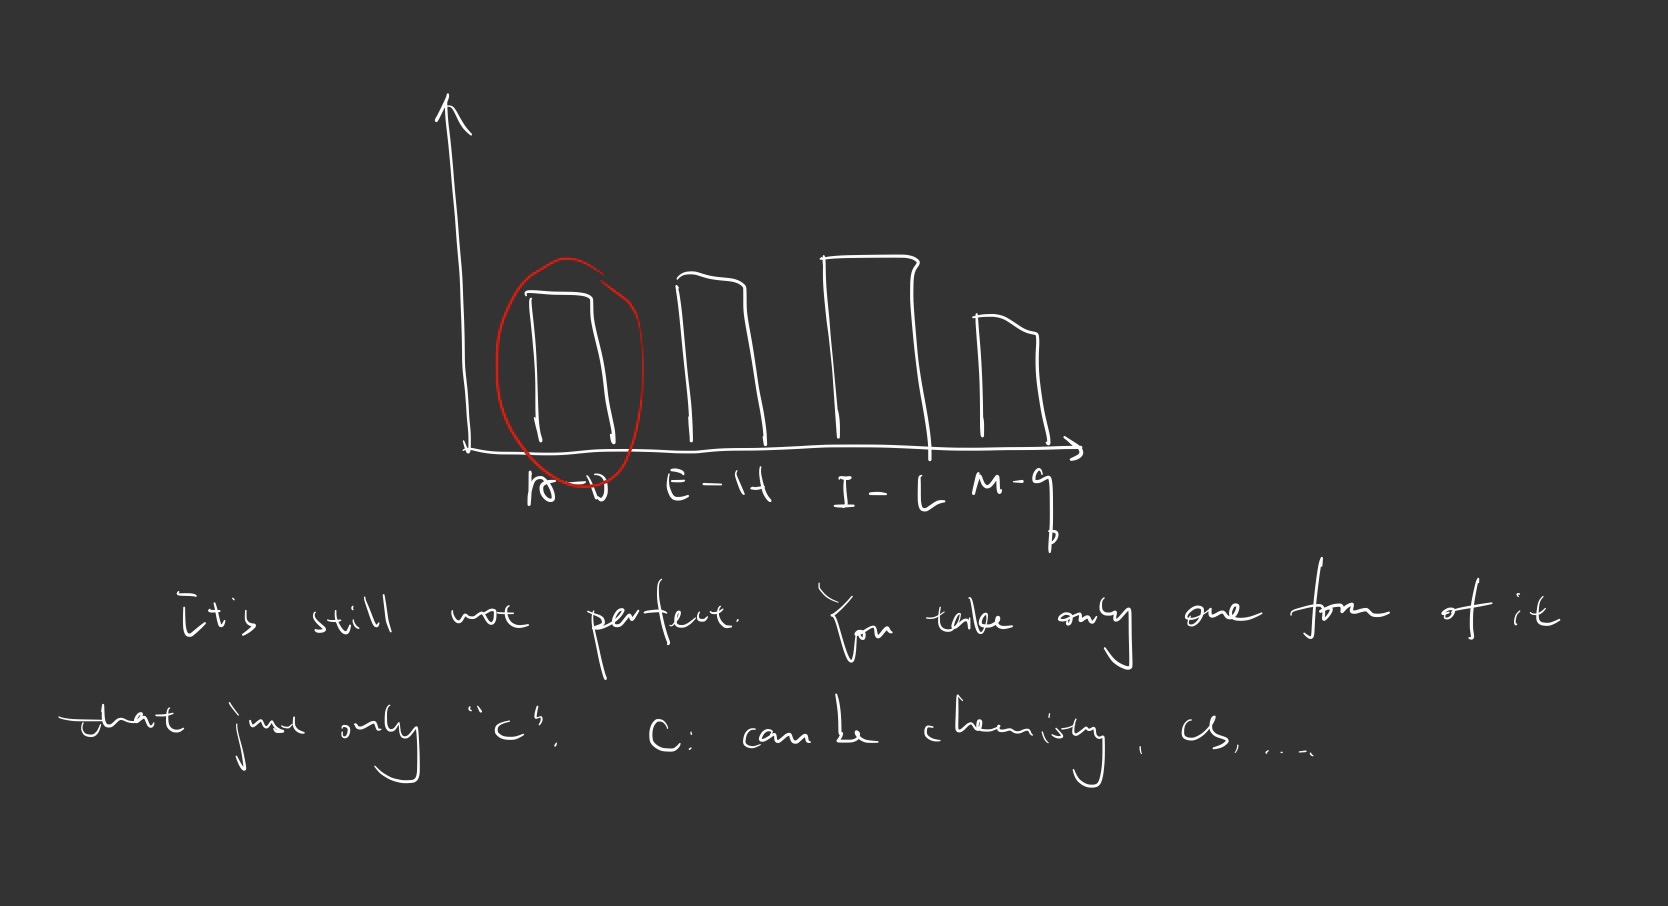 A-D E-H I-L M-q
It's still not perfect. You take only one form of it
that just only "c". C: can be chemistry, CS, ....